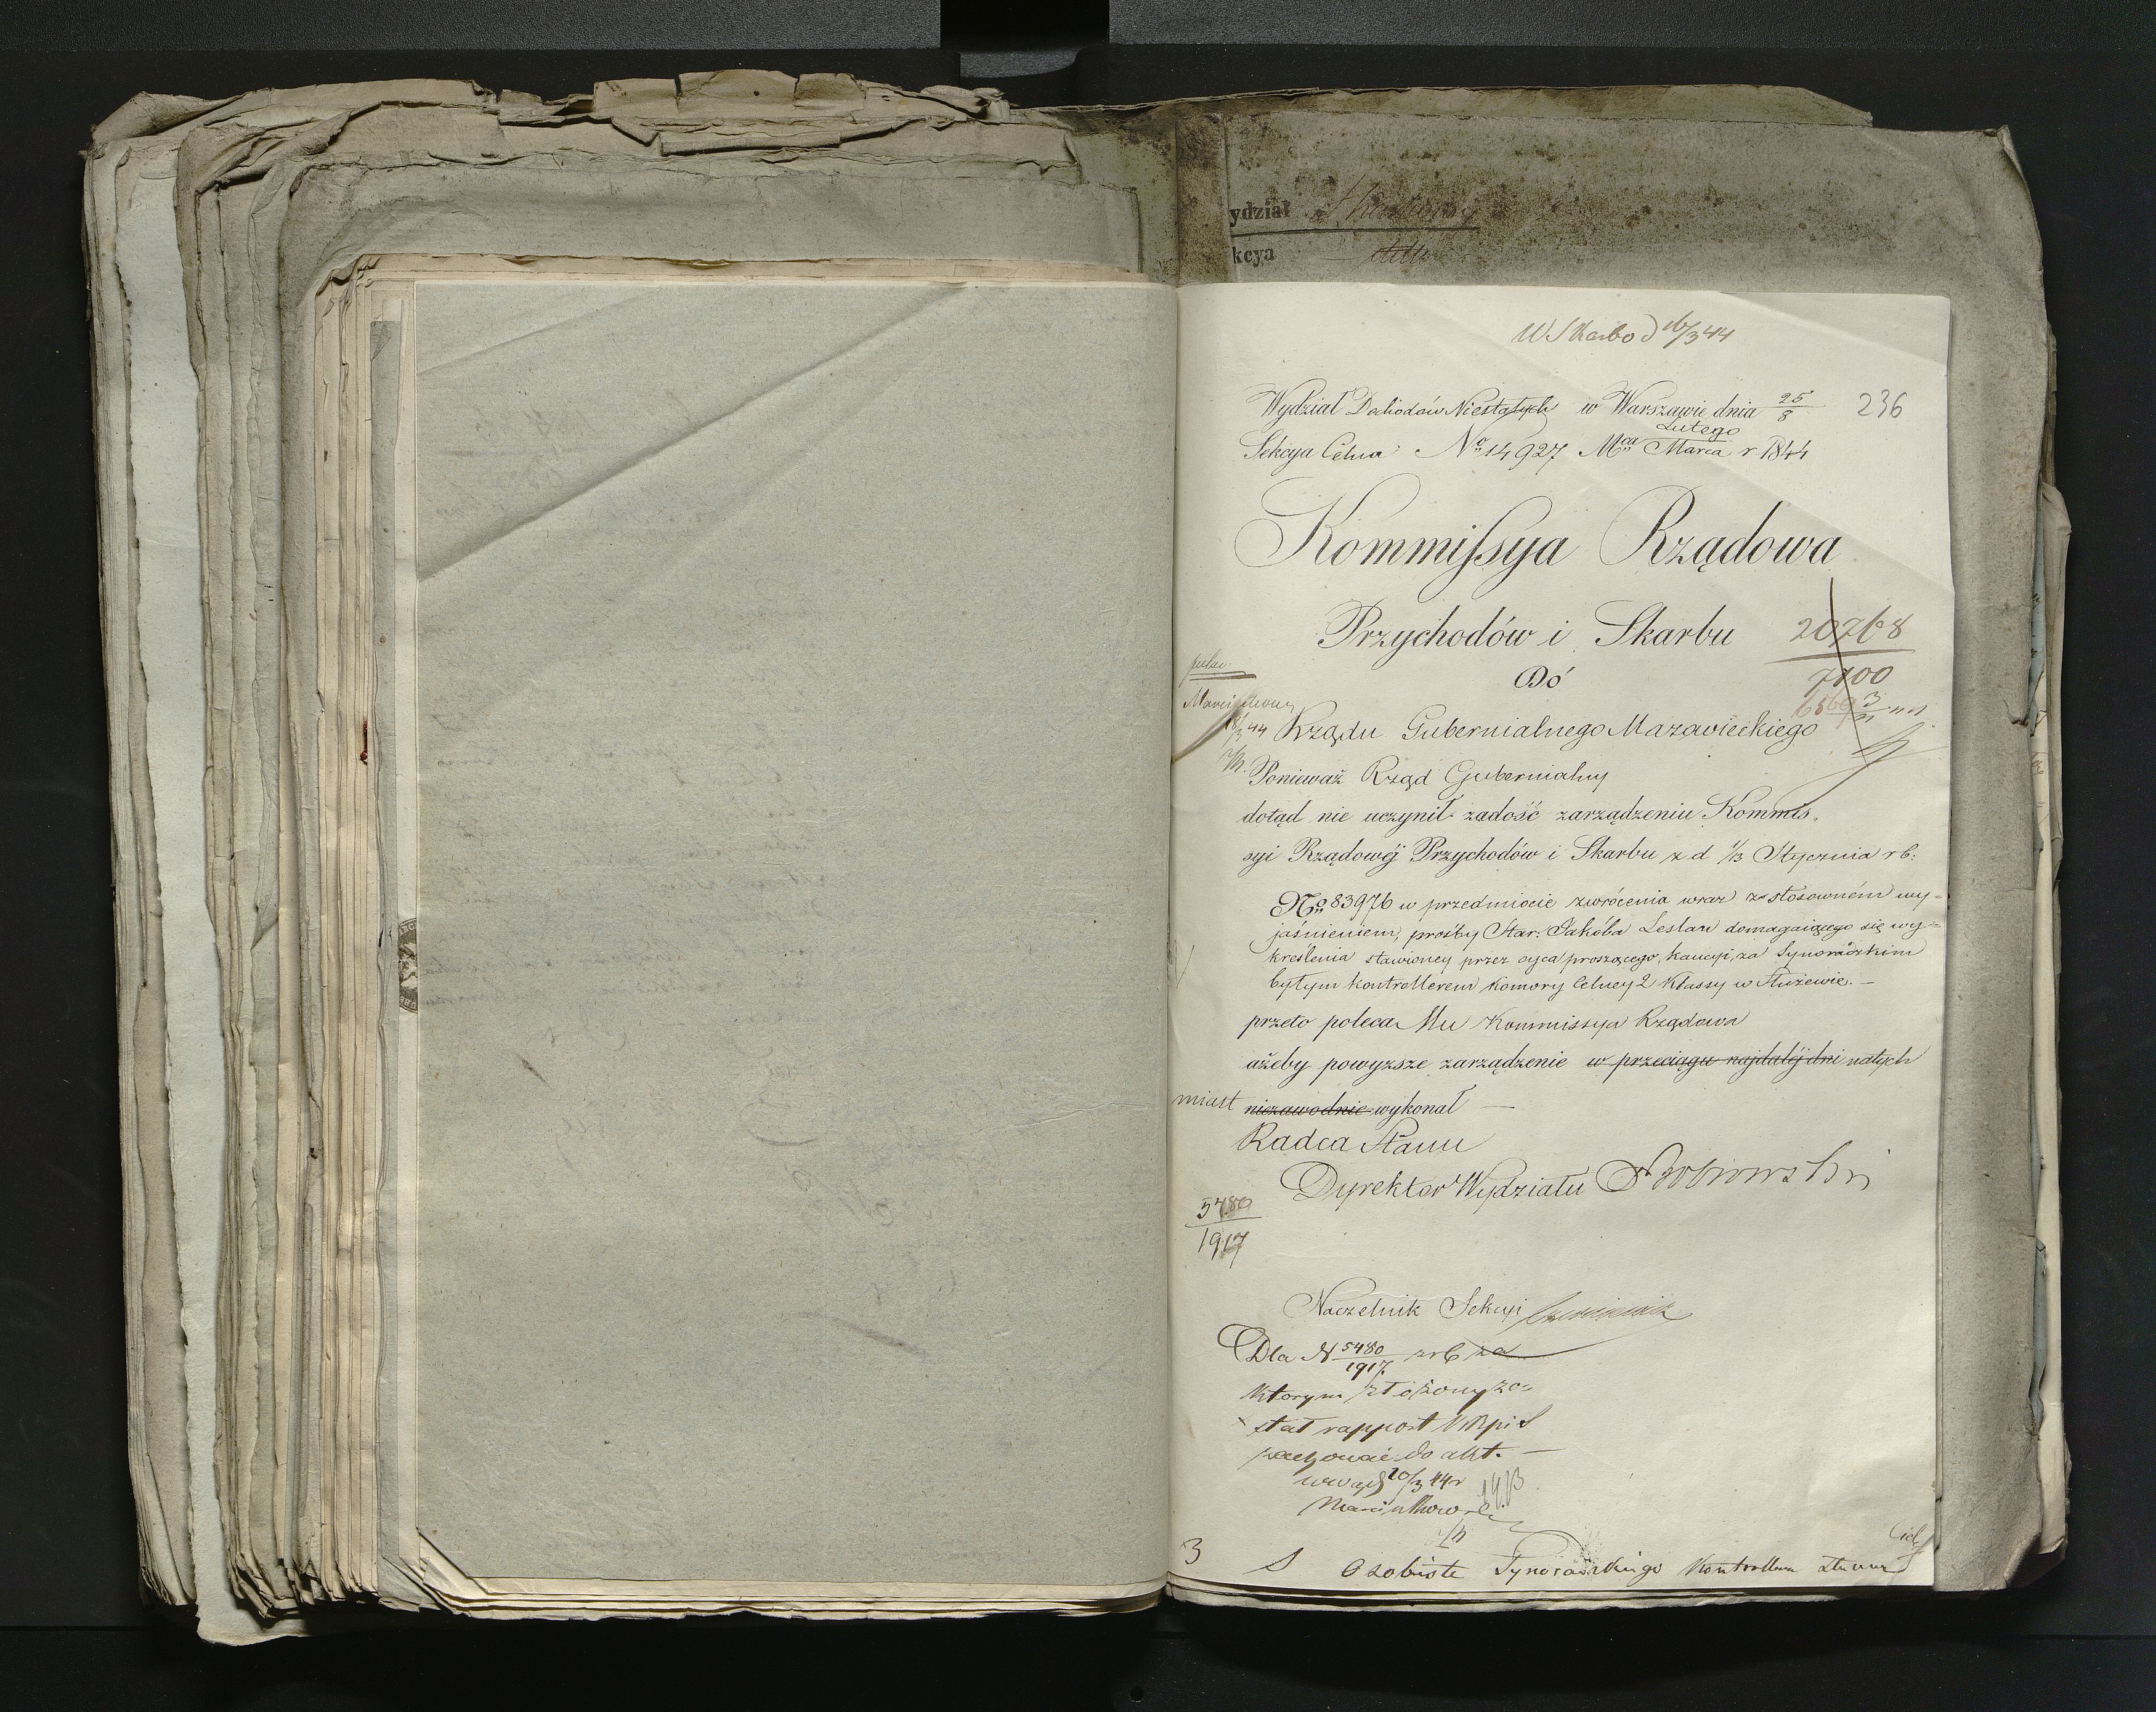 ydział
kcya
W Skarbo d 16/3 44
Wydział Dochodów Niestałych w Warszawie dnia 25/8 236
Lutego
Sekcya Celna No 14927 Mca Marca r 1844
Kommissya Rządowa
Przychodów i Skarbu
20768
7100
Do
Rządu Gubernialnego Mazowieckiego
Ponieważ Rząd Gubernialny
dotąd nie uczynił zadość zarządzeniu Kommis,
syi Rządowéj Przychodów i Skarbu z d 1/13 Stycznia r b:
No 83976 w przedmiocie zwrócenia wraz z stosowném wy-
jaśnieniem, prośby Star: Jakóba Leslau domagaiącego się wy-
kreślenia stawioney przez oyca proszącego, kaucyi, za Synoradzkim
byłym kontrollerem Komory Celney 2 Klassy w Służewie. —
przeto poleca Mu Kommissya Rządowa
ażeby powyzsze zarządzenie w przeciągu najdaléj dni natych
miast niezawodnie wykonał —
Radca Stanu
Dyrektor Wydziału
5480
1917
Naczelnik Sekcyi
Dla N 5480/1917 z r b za
którym złożony zo=
stał rapport KRPiS
zachować do akt. —
20/3 44 r
3
S Osobiste Synoradzkiego Kontrollera